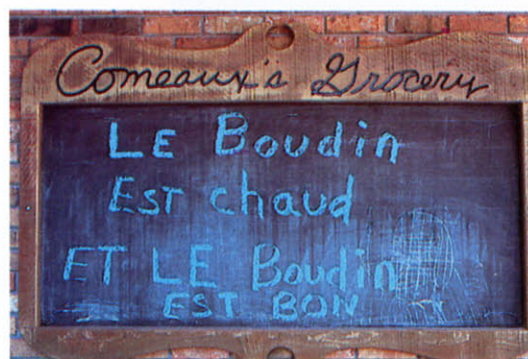 Comeaux's Grocery
LE Boudin
EST chaud
ET LE Boudin
EST BON